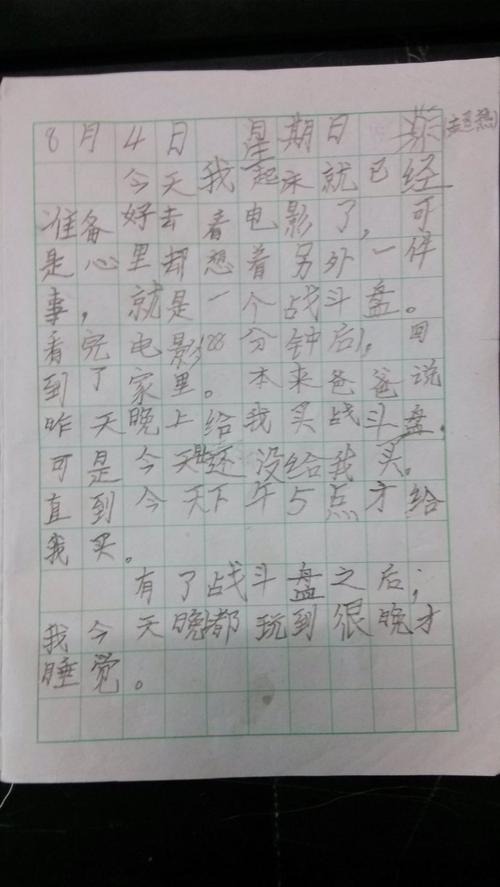 8月4日 星期日 热(超热)
今天我起床就已经
准备好去看电影了,可
是心里却想着另外一件
事,就是一个战斗盘。
看完电影(88分钟后),回
到了家里。本来爸爸说
昨天晚上给我买战斗盘,
可是今天还没给我买。
直到今天下午5点才给
我买。
有了战斗盘之后,
我今天晚都玩到很晚才
睡觉。